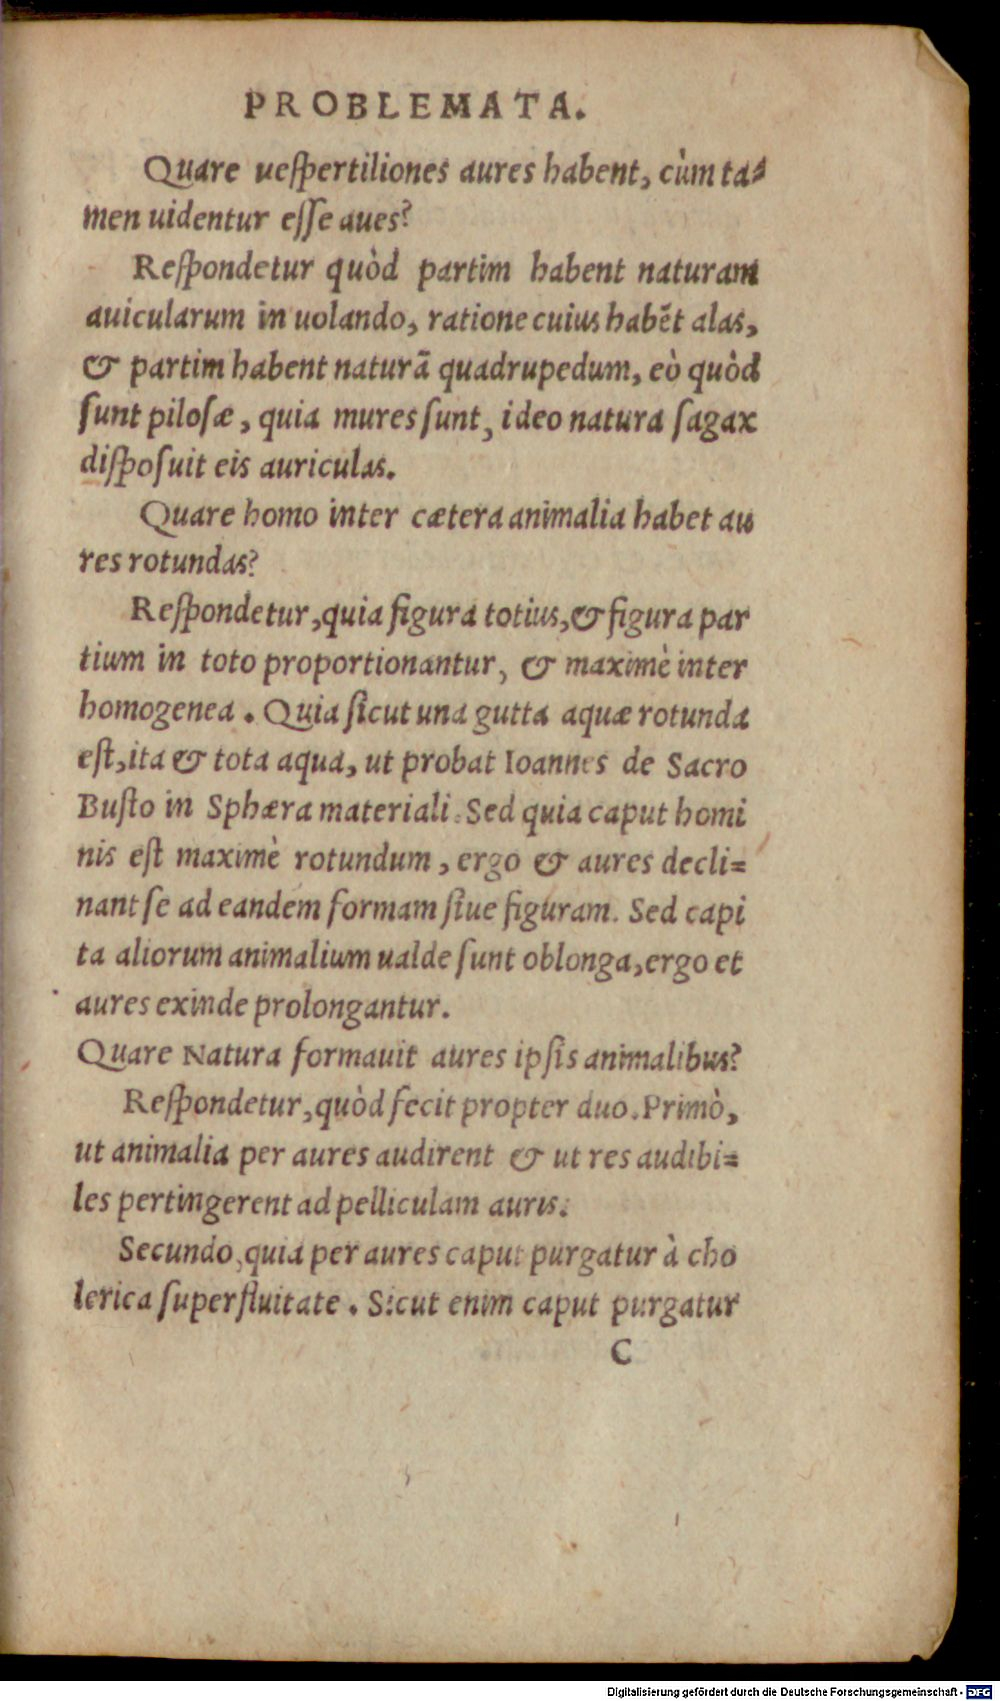 PROBLEMATA.
Quare ueſpertiliones aures habent, cùm ta⸗
men uidentur eſſe aues?
Reſpondetur quòd partim habent naturam
auicularum in uolando, ratione cuius habẽt alas,
& partim habent naturã quadrupedum, eò quòd
ſunt piloſæ, quia mures ſunt, ideo natura ſagax
diſpoſuit eis auriculas.
Quare homo inter cætera animalia habet au
res rotundas?
Reſpondetur, quia figura totius, & figura par
tium in toto proportionantur, & maximè inter
homogenea. Quia ſicut una gutta aquæ rotunda
eſt, ita & tota aqua, ut probat Ioannes de Sacro
Buſto in Sphæra materiali. Sed quia caput homi
nis eſt maximè rotundum, ergo & aures decli⸗
nant ſe ad eandem formam ſiue figuram. Sed capi
ta aliorum animalium ualde ſunt oblonga, ergo et
aures exinde prolongantur.
Quare Natura formauit aures ipſis animalibus?
Reſpondetur, quòd fecit propter duo. Primò,
ut animalia per aures audirent & ut res audibi⸗
les pertingerent ad pelliculam auris.
Secundo, quia per aures caput purgatur à cho
lerica ſuperfluitate. Sicut enim caput purgatur
C
Digitalisierung gefördert durch die Deutsche Forschungsgemeinschaft - DFG